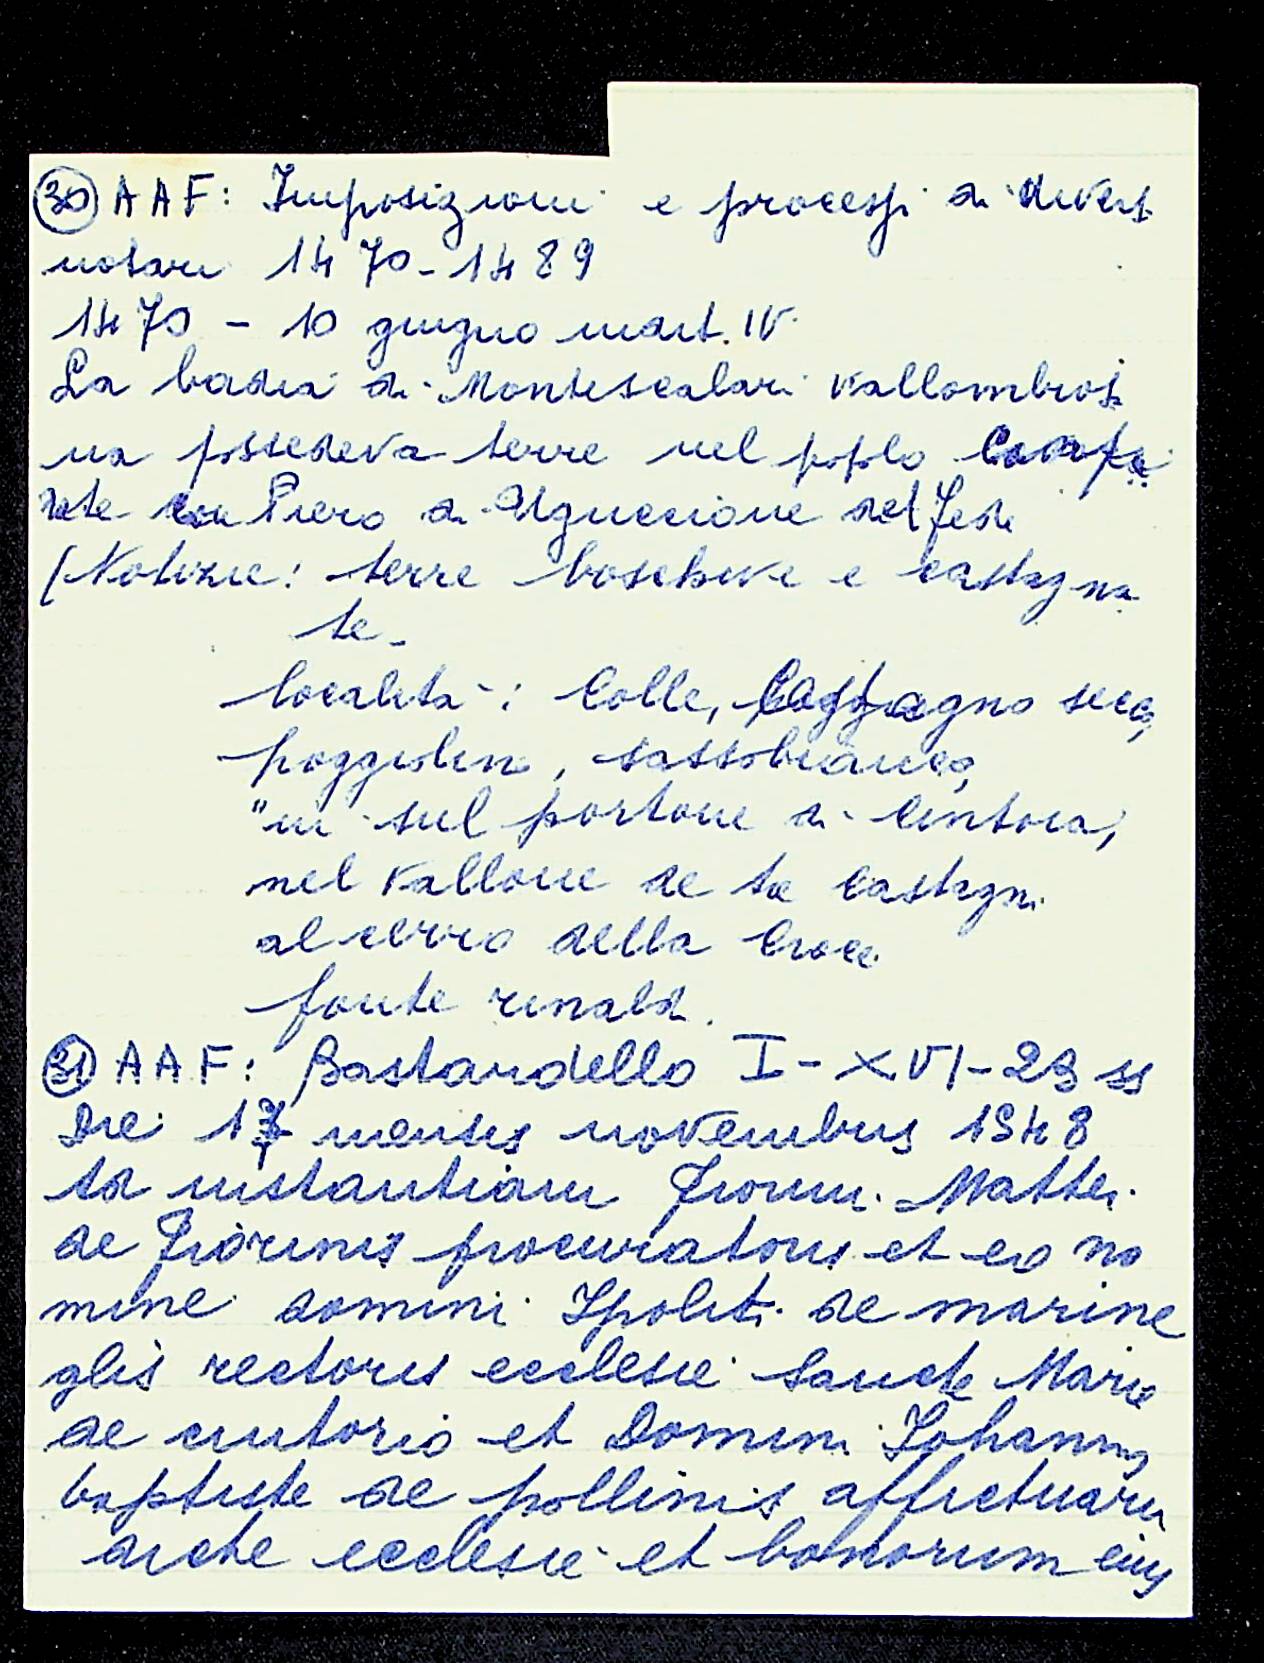 30 AAF: Imposizioni e processi di diversi
notari 1470-1489
1470 - 10 giugno mart. IV
La badia di Montescalari vallombrosi
na possedeva terre nel popolo confi
nate con Piero di Uguccione del Fede
(Notizie: terre boschive e castagna
te -
località: Colle, secco,
poggiolino, sassobianco,
"in sul portone di Cintoia,
nel vallone de castagni
al cerro della Croce
fonte rinaldi.
31 AAF: Bastardello I-XVI-23 ss
Die 17 mensis novembris 1548
ad instantiam Matthei
de Fiorinis procuratoris et eo no
mine domini Ipoliti de marine
glis rectoris ecclesie Sancte Marie
de cintorio et Domini Johannis
baptiste de pollinis affictuarii
dicte ecclesie et bonorum eius